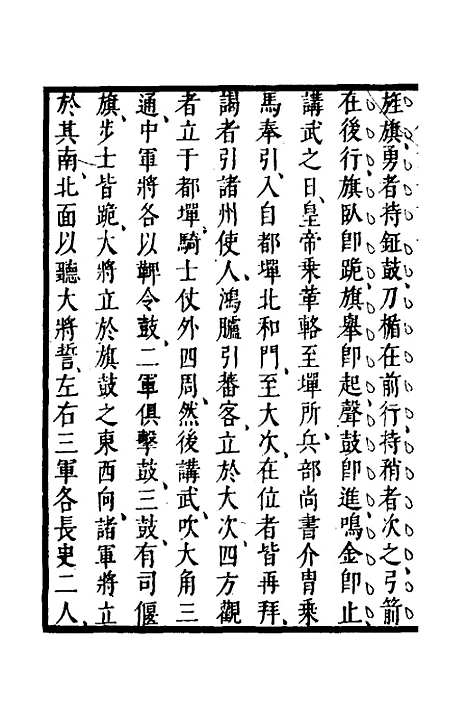 旌旗勇者持鉦鼓刀楯在前行持矟者次之弓箭
在後行旗臥卽跪旗舉卽起聲鼓卽進鳴金卽止
講武之日皇帝乘革輅至墠所兵部尚書介冑乘
馬奉引入自都墠北和門至大次在位者皆再拜
謁者引諸州使人鴻臚引蕃客立於大次四方觀
者立于都墠騎士仗外四周然後講武吹大角三
通中軍將各以鞞令鼓二軍俱擊鼓三鼓有司偃
旗步士皆跪大將立於旗鼓之東西向諸軍將立
於其南北面以聽大將誓左右三軍各長史二人